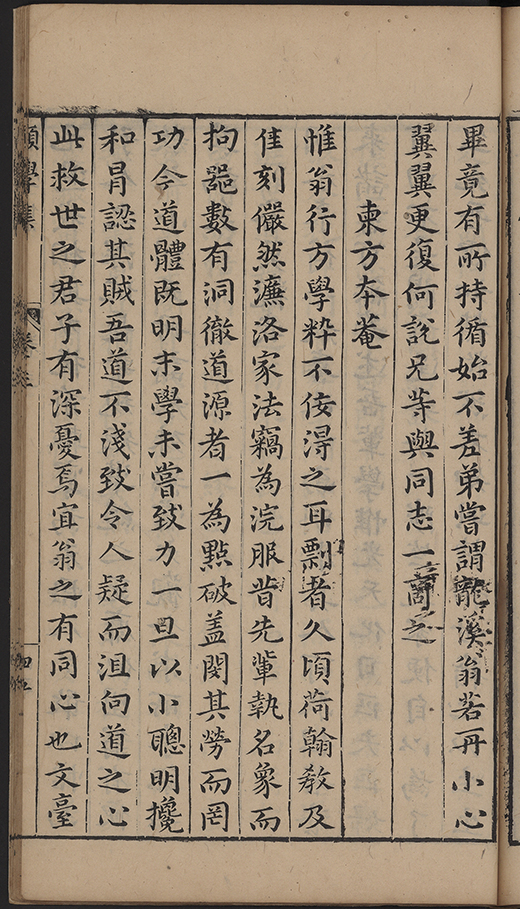 畢竟有所持循始不差弟嘗謂龍溪翁若再小心
翼翼更復何說兄等與同志一商之
柬方本菴
惟翁行方學粹不佞淂之耳剽者久頃荷翰教及
佳刻儼然濂洛家法竊為浣服昔先輩執名象而
拘噐數有洞徹道源者一為點破盖閔其勞而罔
功今道體既明末學未嘗致力一旦以小聰明攙
和冐認其賊吾道不淺致令人疑而沮向道之心
此救世之君子有深憂焉宜翁之有同心也文臺
願學集
卷之三
四五